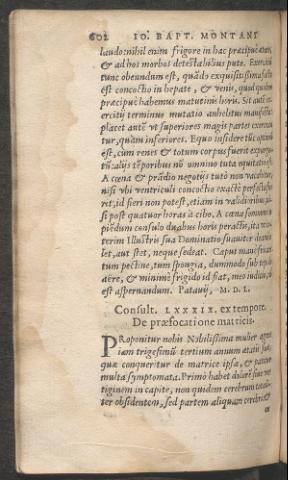 602 IO. BAPT. MONTANI
laudo: nihil enim frigore in hac præcipuè
& ad hos morbos detestabilius puto.
tunc obeundum est, quãdo exquisitissima
est concoctio in hepate, & venis, quod
præcipuè habemus matutinis horis. Sit
ercitij terminus mutatio anhelitus
placet autẽ vt superiores magis partes
tur, quàm inferiores. Equo insidere tũc
est, cùm renes & totum corpus fuerit
tũ: alijs tẽporibus nõ omnino tuta equitatio
A cœna & prãdio negotijs tutò non
nisi vbi ventriculi concoctio exactè
rit, id fieri non potest, etiam in
si post quatuor horas à cibo. A cœna
piẽdum consulo duabus horis peractis, ita
terim Illustris sua Dominatio suauiter
let, aut stet, neque sedeat. Caput manè
tum pectine, tum spongia, dummodo sub
aëre, & minimè frigido id fiat, meo iudicio,
est aspernandum. Patauij, M. D. L.
Consult. LXXXIX. ex tempore.
De præfocatione matricis.
PRoponitur nobis Nobilissima mulier
iam trigesimũ tertium annum
quæ conqueritur de matrice ipsa, &
multa symptomata. Primò habet dolorẽ
tiginem in capite, non quidem cerebrum
ter obsidentem, sed partem aliquam cerebri &